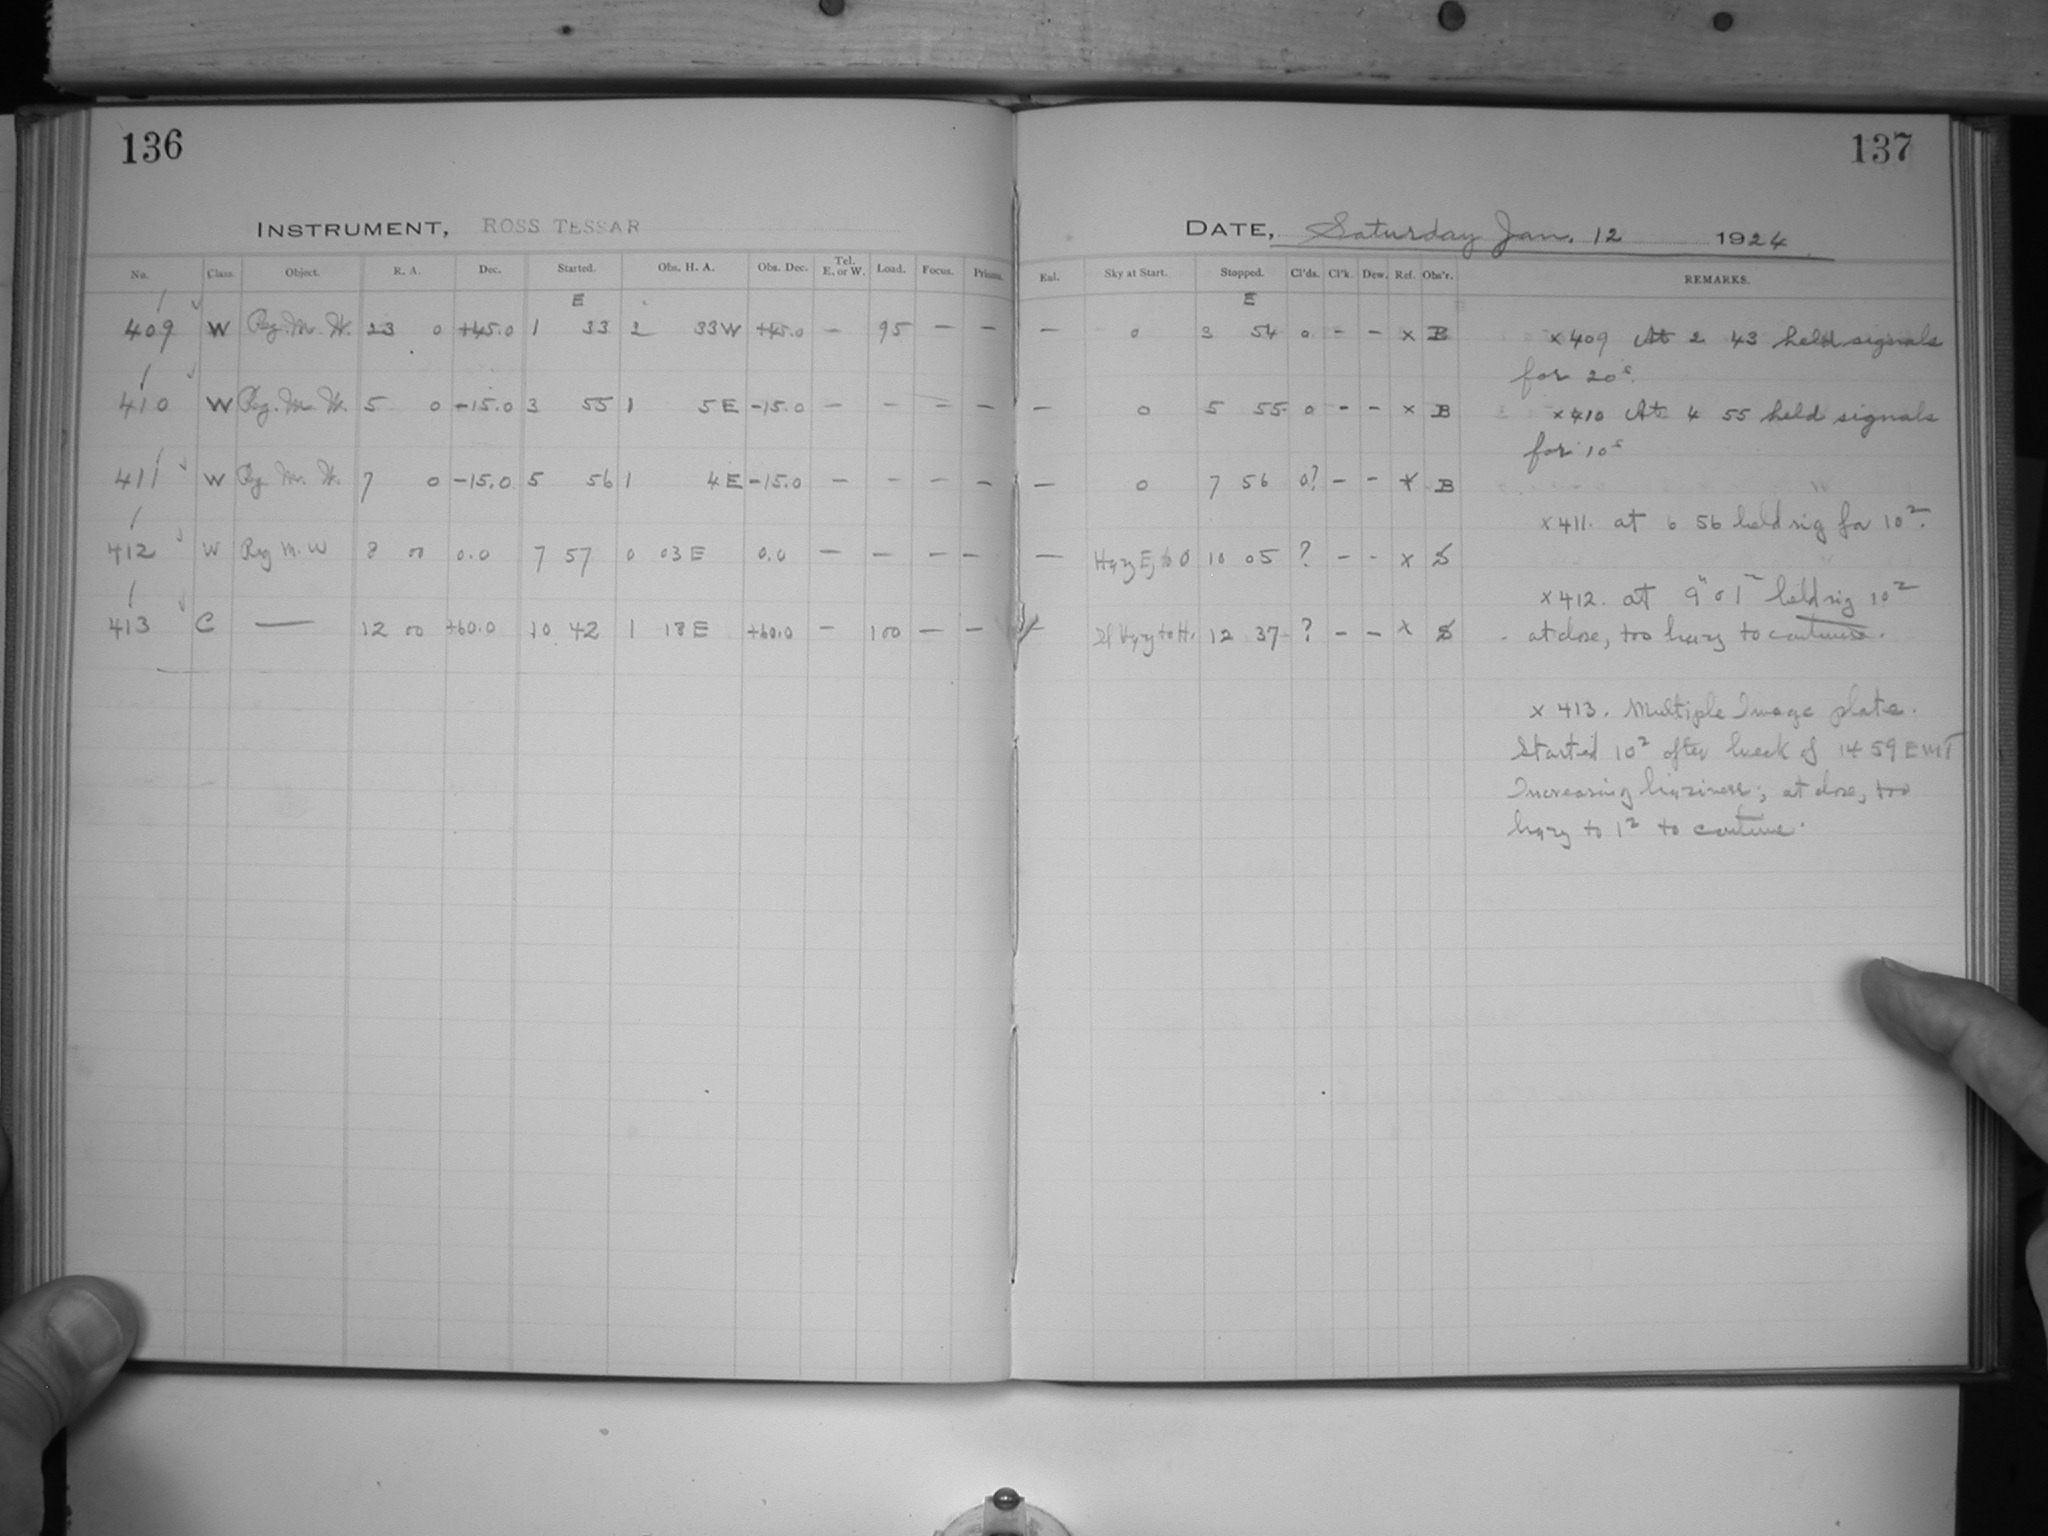 136
137
INSTRUMENT, ROSS TESSAR
DATE, Saturday Jan. 12 1924
No. Class. Object. R. A. Dec. Started. Obs. H. A. Obs. Dec. Tel. E. or W. Load. Focus. Prisms. Eul. Sky at Start. Stopped. Cl'ds. Cl'k. Dew. Ref. Obs'r. REMARKS.
E E
409 W Reg. M. W. 23 0 +45.0 1 33 2 33 W +45.0 – 95 – – – 0 3 54 0 – – x B x 409 At 2 43 held signals
for 20s.
410 W Reg. M. W. 5 0 -15.0 3 55 1 5 E -15.0 – – – – – 0 5 55 0 – – x B x 410 At 4 55 held signals
for 10s
411 W Reg. M. W. 7 0 -15.0 5 56 1 4 E -15.0 – – – – – 0 7 56 0? – – x B
x 411. at 6 56 held sig for 10s.
412 W Reg M. W 8 00 0.0 7 57 0 03 E 0.0 – – – – – Hazy E, to 0 10 05 ? – – x S
x 412. at 9 01 held sig 10s
413 C — 12 00 +60.0 10 42 1 18 E +60.0 – 100 – – – Hazy to H. 12 37 ? – – x S at close, too hazy to continue.
x 413. Multiple Image plate.
Started 10s after break of 14 59 EMT
Increasing haziness; at close, too
hazy to continue.